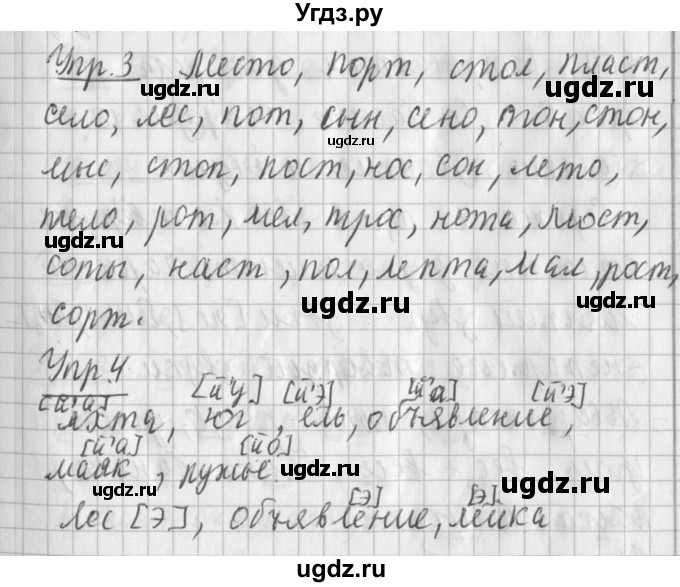 Угдз.ру
Упр.3 Место, порт, стол, пласт,
ugdz.ru ugdz.ru
село, лес, пот, сын, сено, тон, стон,
мыс, стоп, пост, нос, сон, лето,
тело, рот, мел, трос, нота, мост,
ugdz.ru ugdz.ru
соты, наст, пол, лепта, мал, рост,
ugdz.ru
сорт.
Упр.4
[й'а] [й'у] [й'э] [й'а] [й'э]
яхта, юг, ель, объявление,
[й'а] [й'о]
маяк, ружьё.
ugdz.ru ugdz.ru
[э] [э]
лес [э], объявление, лейка
ugdz.ru